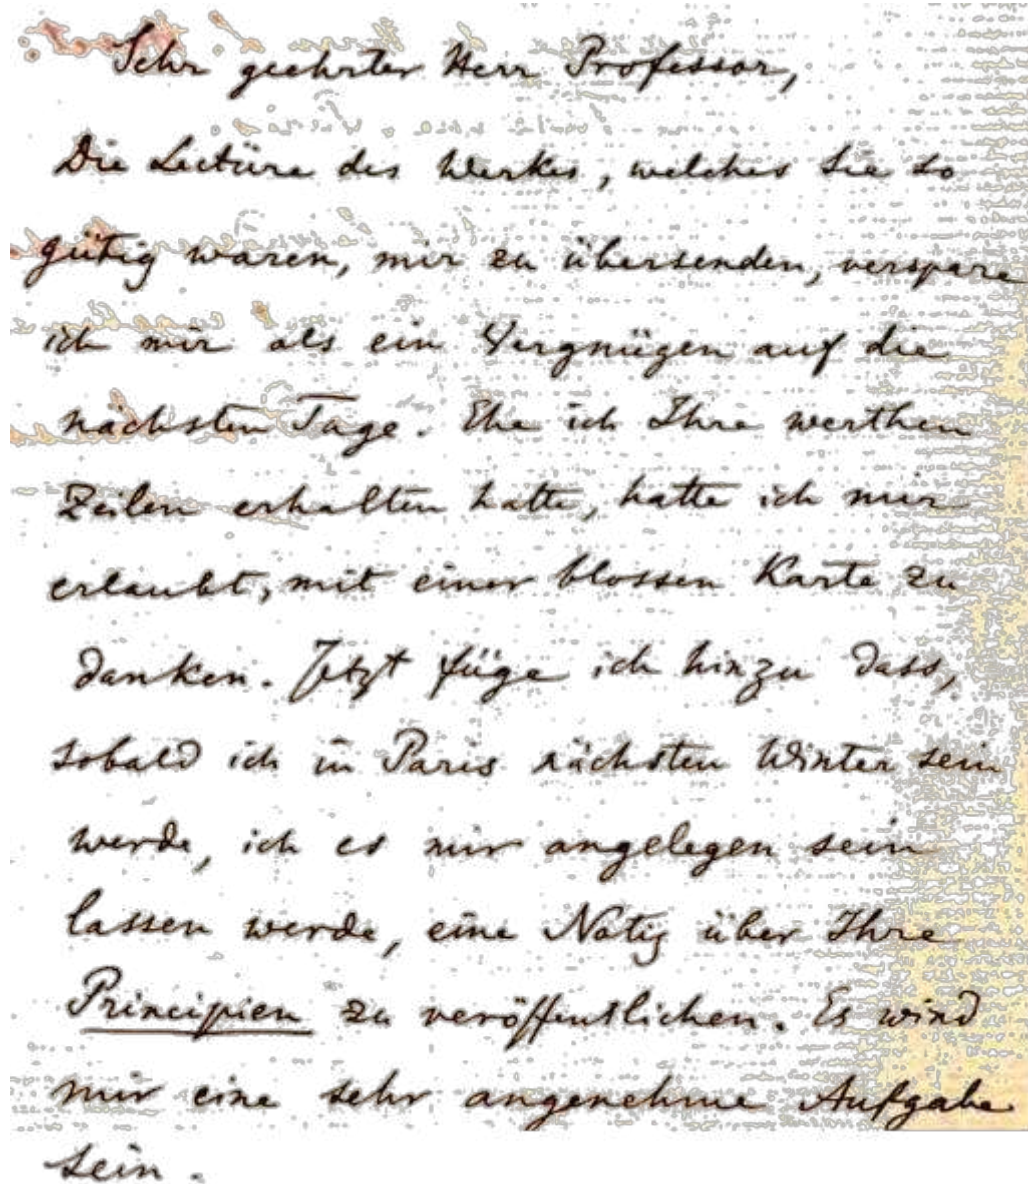 Sehr geehrter Herr Professor,
Die Lectüre des Werkes, welches Sie so
gütig waren, mir zu übersenden, verspare
ich mir als ein Vergnügen auf die
nächsten Tage. Ehe ich Ihre werthen
Zeilen erhalten hatte, hatte ich mir
erlaubt, mit einer blossen Karte zu
danken. Jetzt füge ich hinzu dass,
sobald ich in Paris nächsten Winter sein
werde, ich es mir angelegen sein
lassen werde, eine Notiz über Ihre
Principien zu veröffentlichen. Es wird
mir eine sehr angenehme Aufgabe
sein.